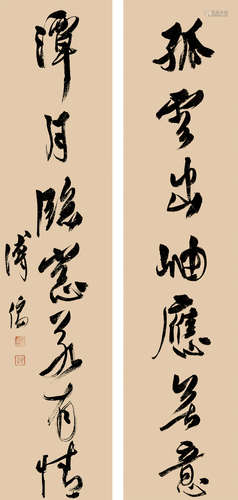 孤雲出岫應無意
潭月臨窗若有情
溥儒